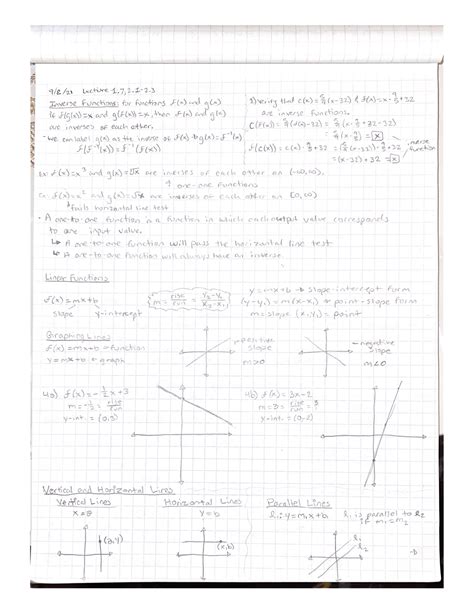 9/8/23 Lecture 1.7, 2.1-2.3
Inverse Functions: for functions f(x) and g(x)
if f(g(x))=x and g(f(x))=x, then f(x) and g(x)
are inverses of each other.
we can label g(x) as the inverse of f(x) → g(x)=f⁻¹(x)
f(f⁻¹(x))=f⁻¹(f(x))
verify that c(x)=5/9(x-32) & f(x)=x·9/5+32
are inverse functions.
=(x-32)+32 = x
inverse
function
Ex f(x)=x³ and g(x)=∛x are inverses of each other on (-∞,∞).
one-one functions
f(x)=x² and g(x)=√x are inverses of each other on [0,∞)
fails horizontal line test
• A one-to-one function is a function in which each output value corresponds
to one input value.
↳ A one-to-one function will pass the horizontal line test
↳ A one-to-one function will always have an inverse.
Linear Functions
f(x)=mx+b
slope y-intercept
m = rise/run = y₂-y₁/x₂-x₁
y=mx+b → slope-intercept form
(y-y₁)=m(x-x₁) → point-slope form
m=slope (x₁,y₁)=point
Graphing Lines
f(x)=mx+b → function
y=mx+b → graph
positive
slope
m>0
negative
slope
m<0
4a) f(x)=-1/2x+3
m=-1/2=rise/run
y-int.=(0,3)
4b) f(x)=3x-2
m=3=rise/run=3
y-int.=(0,-2)
Vertical and Horizontal Lines
Vertical Lines
x=a
(a,y)
Horizontal Lines
y=b
(x,b)
Parallel Lines
l₁: y=m₁x+b₁
l₁ is parallel to l₂
if m₁=m₂
l₁
l₂